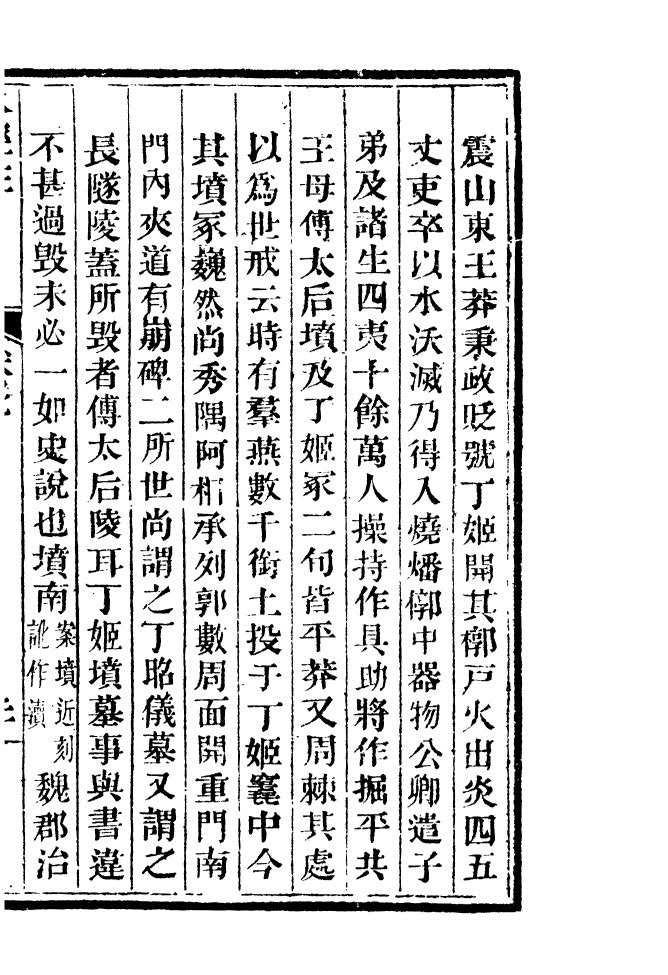 震山東王莽秉政貶號丁姬開其槨戸火出炎四五
丈吏卒以水沃滅乃得入燒燔槨中器物公卿遣子
弟及諸生四夷十餘萬人操持作具助將作掘平共
王母傅太后墳及丁姬冢二旬皆平莽又周棘其處
以爲世戒云時有羣燕數千銜土投于丁姬竁中今
其墳冢巍然尚秀隅阿相承列郭數周面開重門南
門内夾道有崩碑二所世尚謂之丁昭儀墓又謂之
長隧陵蓋所毁者傅太后陵耳丁姬墳墓事與書違
不甚過毁未必一如史說也墳南案墳近刻訛作瀆魏郡治